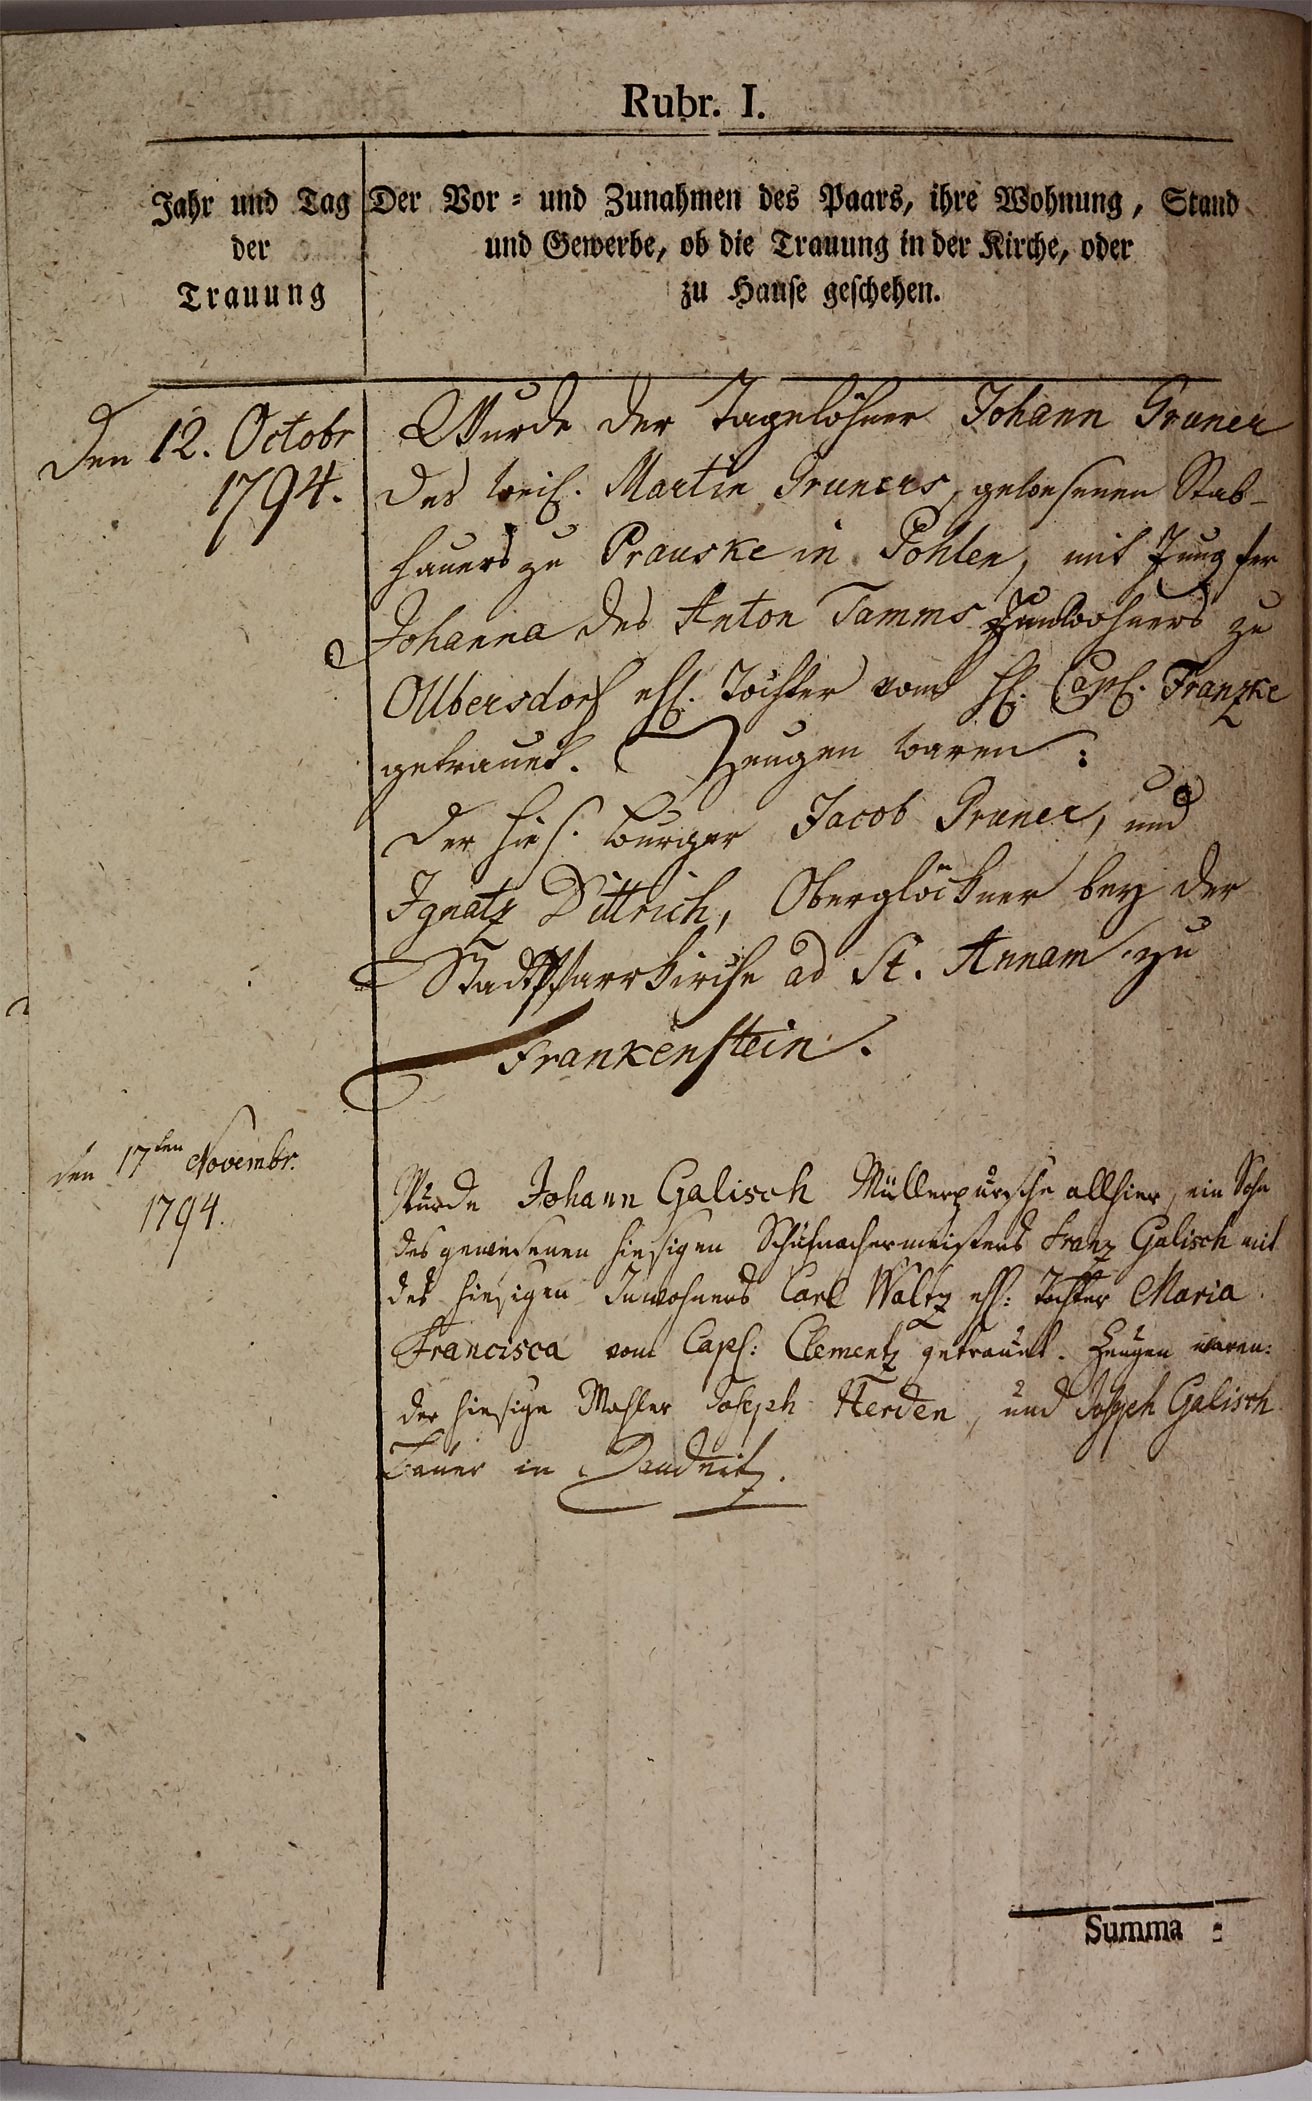 Rubr. I.
Jahr und Tag
der
Trauung
Der Vor - und Zunahmen des Paars, ihre Wohnung, Stand
und Gewerbe, ob die Trauung in der Kirche, oder
zu Hause geschehen.
Den 12. Octobr
1794.
Wurde der Tagelöhner Johann Gruner
des weil. Martin Gruners, gewesenen
zu Prauske in Pohlen, mit Jungfer
Johanna des Anton Tamms Innwohners zu
Olbersdorf ehl. Tochter vom H. Capl. Franzke
getrauet. Zeugen waren:
der hies. Burger Jacob Gruner, und
Ignatz Dittrich, Oberglöckner bey der
Stadtpfarrkirche ad St. Annam zu
Frankenstein.
den 17ten Novembr.
1794.
Wurde Johann Galisch Müllerpursche allhier, ein Sohn
des gewesenen hiesigen Schuhmachermeisters Franz Galisch mit
des hiesigen Inwohners Carl Waltz ehl: Tochter Maria
Francisca vom Capl: Clementz getrauet. Zeugen waren:
der hiesige Mahler Joseph Herden, und Joseph Galisch
Bauer in
Summa